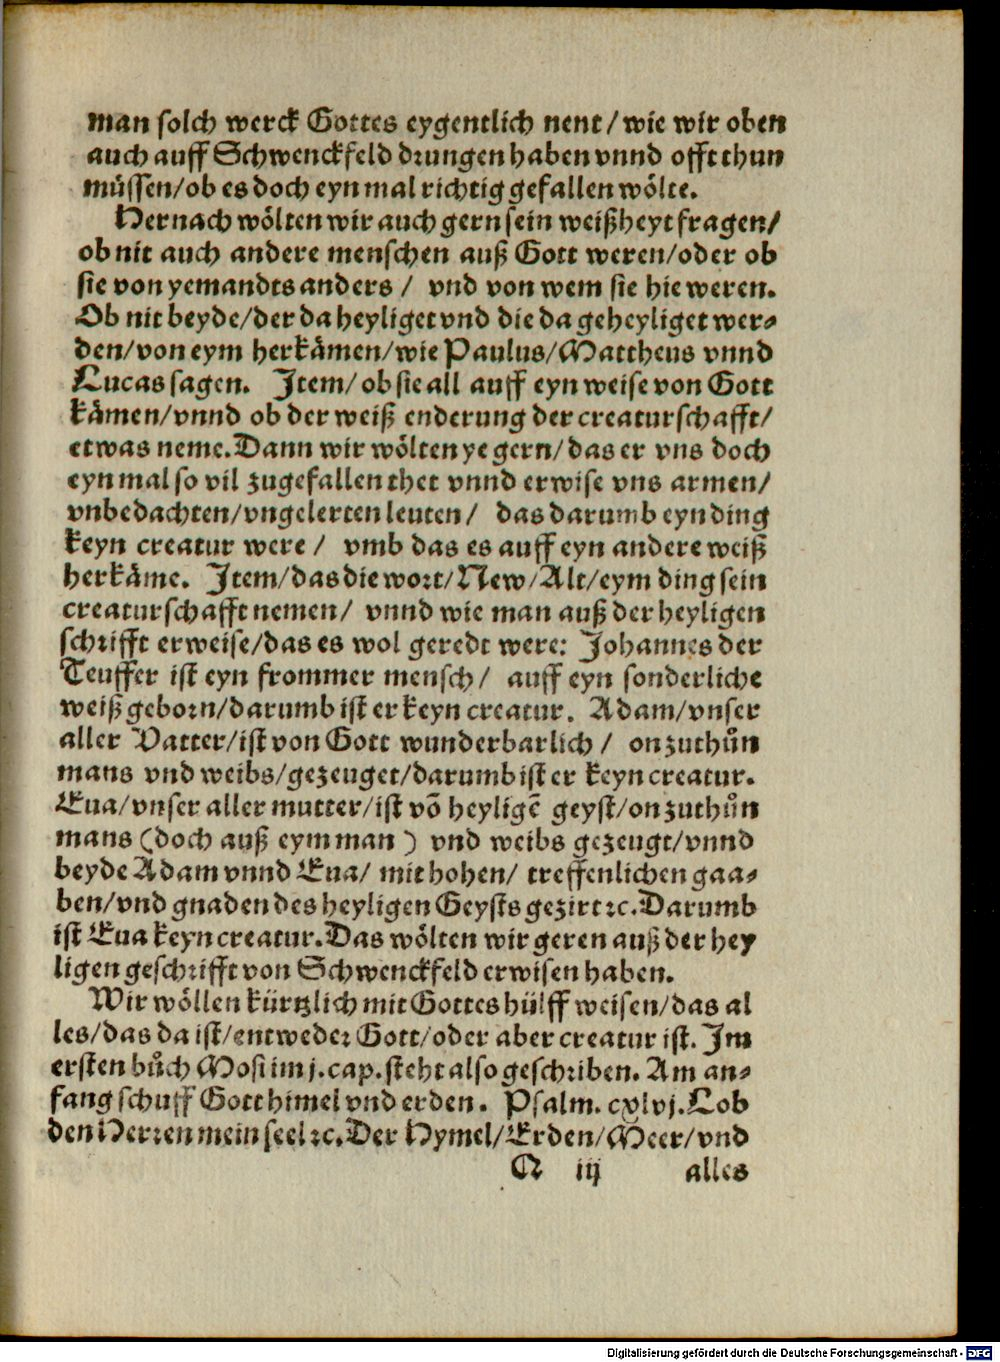 man solch werck Gottes eygentlich nent/wie wir oben
auch auff Schwenckfeld drungen haben vnnd offt thun
müssen/ob es doch eyn mal richtig gefallen wölte.
Hernach wölten wir auch gern sein weißheyt fragen/
ob nit auch andere menschen auß Gott weren/oder ob
sie von yemandts anders / vnd von wem sie hie weren.
Ob nit beyde/der da heyliget vnd die da geheyliget wer⸗
den/von eym herkämen/wie Paulus/Mattheus vnnd
Lucas sagen. Item/ob sie all auff eyn weise von Gott
kämen/vnnd ob der weiß enderung der creaturschafft/
etwas neme. Dann wir wölten ye gern/das er vns doch
eyn mal so vil zugefallen thet vnnd erwise vns armen/
vnbedachten/vngelerten leuten/ das darumb eyn ding
keyn creatur were / vmb das es auff eyn andere weiß
herkäme. Item/das die wort/New/Alt/eym ding sein
creaturschafft nemen/ vnnd wie man auß der heyligen
schrifft erweise/das es wol geredt were: Johannes der
Teuffer ist eyn frommer mensch/ auff eyn sonderliche
weiß geborn/darumb ist er keyn creatur. Adam/vnser
aller Vatter/ist von Gott wunderbarlich / on zuthůn
mans vnd weibs/gezeuget/darumb ist er keyn creatur.
Eua/vnser aller mutter/ist võ heyligẽ geyst/on zuthůn
mans (doch auß eym man ) vnd weibs gezeugt/vnnd
beyde Adam vnnd Eua/ mit hohen/ treffenlichen gaa⸗
ben/vnd gnaden des heyligen Geysts geziert ꝛc. Darumb
ist Eua keyn creatur. Das wölten wir geren auß der hey
ligen geschrifft von Schwenckfeld erwisen haben.
Wir wöllen kürtzlich mit Gottes hülff weisen/das al
les/das da ist/entweder Gott/oder aber creatur ist. Im
ersten bůch Mosi im j. cap. steht also geschriben. Am an⸗
fang schuff Gott himel vnd erden. Psalm. cxlvj. Lob
den Herren mein seel ꝛc. Der Hymel/Erden/Meer/vnd
iij alles
Digitalisierung gefördert durch die Deutsche Forschungsgemeinschaft - DFG